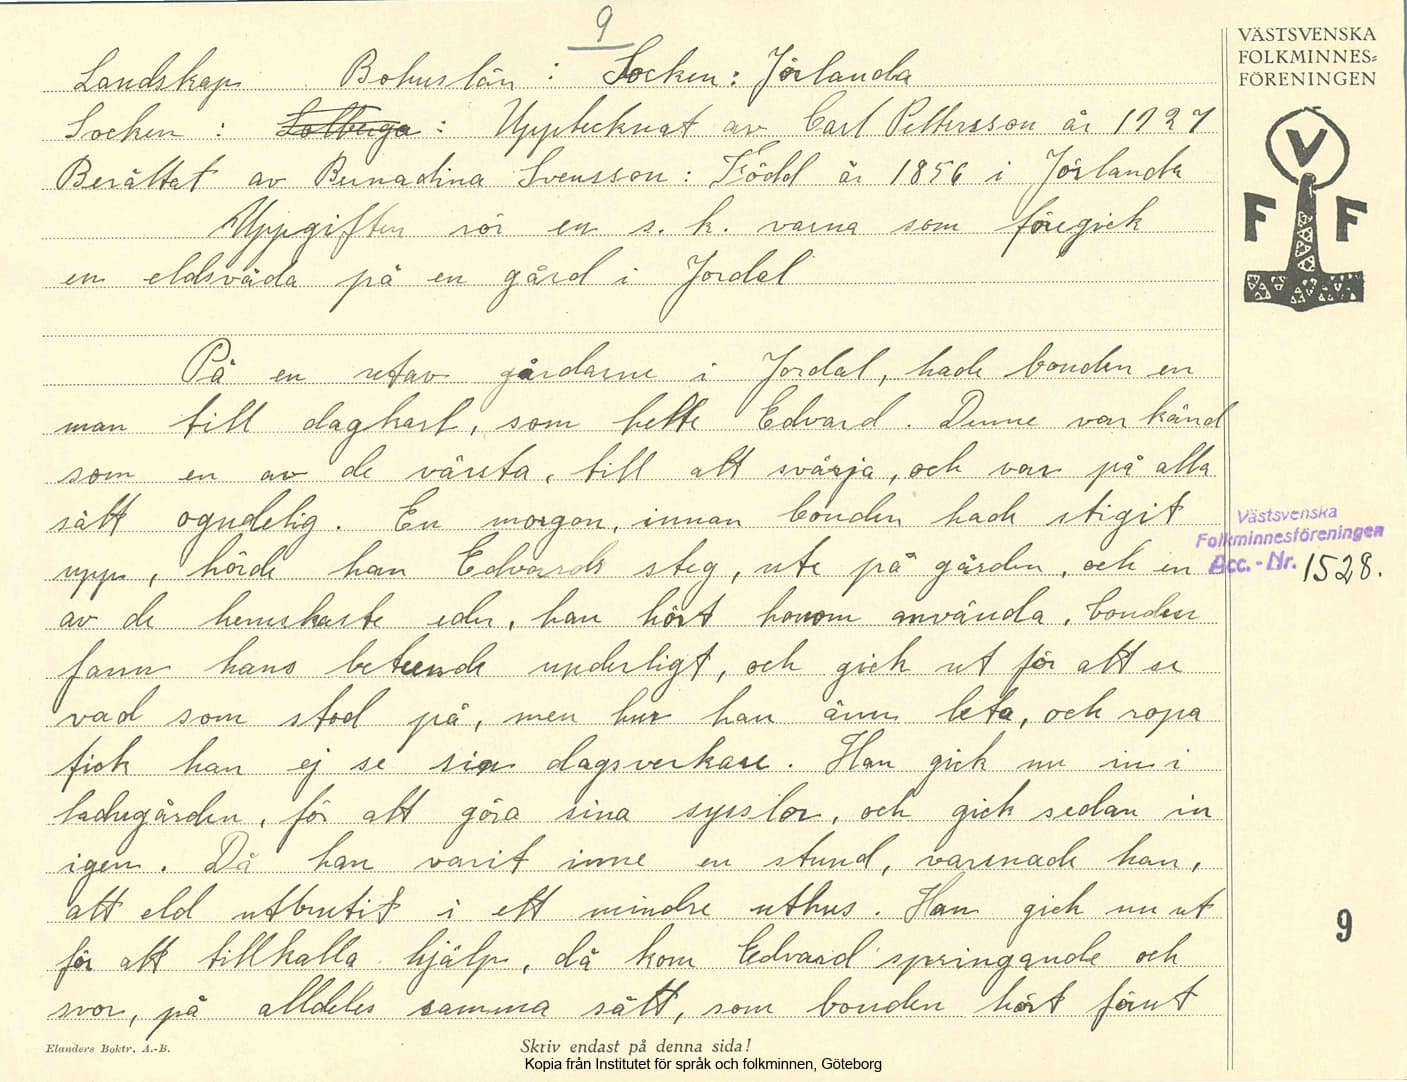 9
Landskap Bohuslän : Socken : Jörlanda
Socken : Solberga : Upptecknat av Carl Pettersson år 1927
Berättat av Bernadina Svensson : Född år 1856 i Jörlanda
Uppgiften rör en s. k. varna som föregick
en eldsvåda på en gård i Jordal
På en utav gårdarne i Jordal, hade bonden en
man till daghart, som hette Edvard. Denne var känd
som en av de värsta, till att svärja, och var på alla
sätt ogudelig. En morgon, innan bonden hade stigit
upp, hörde han Edvards steg, ute på gården, och en
av de hemskaste eder, han hört honom använda, bonden
fann hans beteende underligt, och gick ut för att se
vad som stod på, men hur han änn leta, och ropa
fick han ej se sin dagsverkare. Han gick nu in i
ladugården, för att göra sina sysslor, och gick sedan in
igen. Då han varit inne en stund, varsnade han,
att eld utbrutit i ett mindre uthus. Han gick nu ut
för att tillkalla hjälp, då kom Edvard springande och
svor, på alldeles samma sätt, som bonden hört förut
VÄSTSVENSKA
FOLKMINNES=
FÖRENINGEN
V
F F
Västsvenska
Folkminnesföreningen
Acc.-Nr. 1528.
9
Elanders Boktr. A.-B.
Skriv endast på denna sida!
Kopia från Institutet för språk och folkminnen, Göteborg